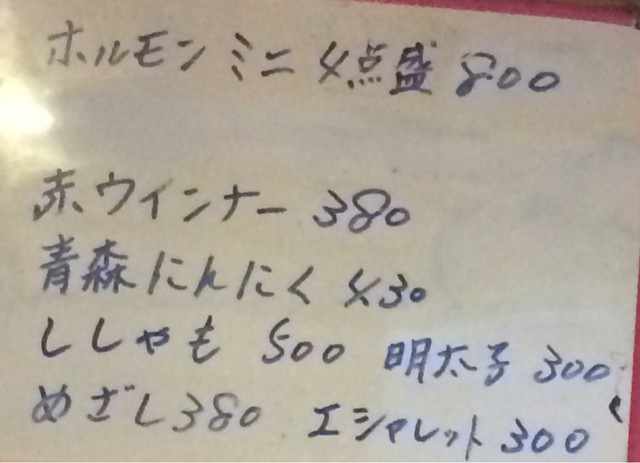 ホルモンミニ4点盛 800
赤ウインナー 380
青森にんにく 430
ししゃも 500 明太子 300
めざし 380 エシャレット 300